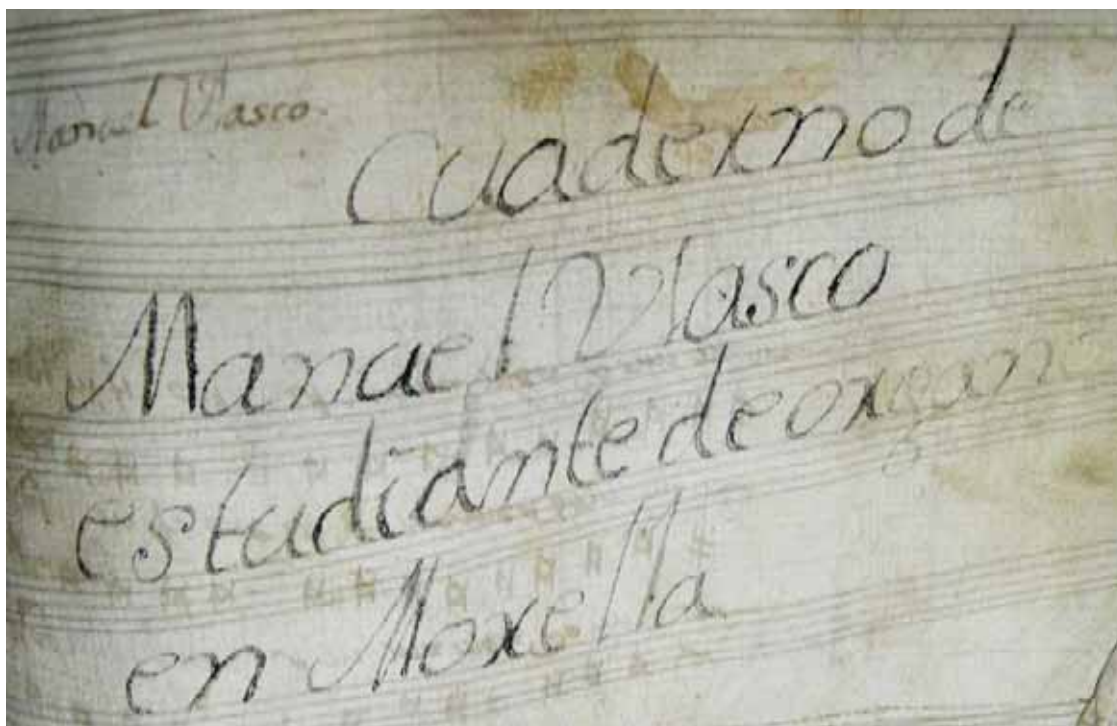 Manuel Vlasco
Cuaderno de
Manuel Vlasco
estudiante de organo
en Morella